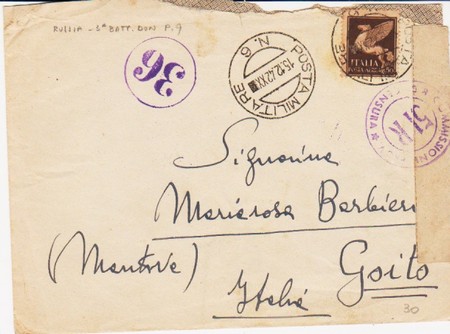 RUSSIA - 5° BATT. DON P. 9
36
POSTA MILITARE
N. 6
15.12.42.XXI
ITALIA
POSTA AEREA
POSTA
COMMISSIONE
CENSURA
Signorina
Mariarosa Barbieri
(Mantova) Goito
Italia
30